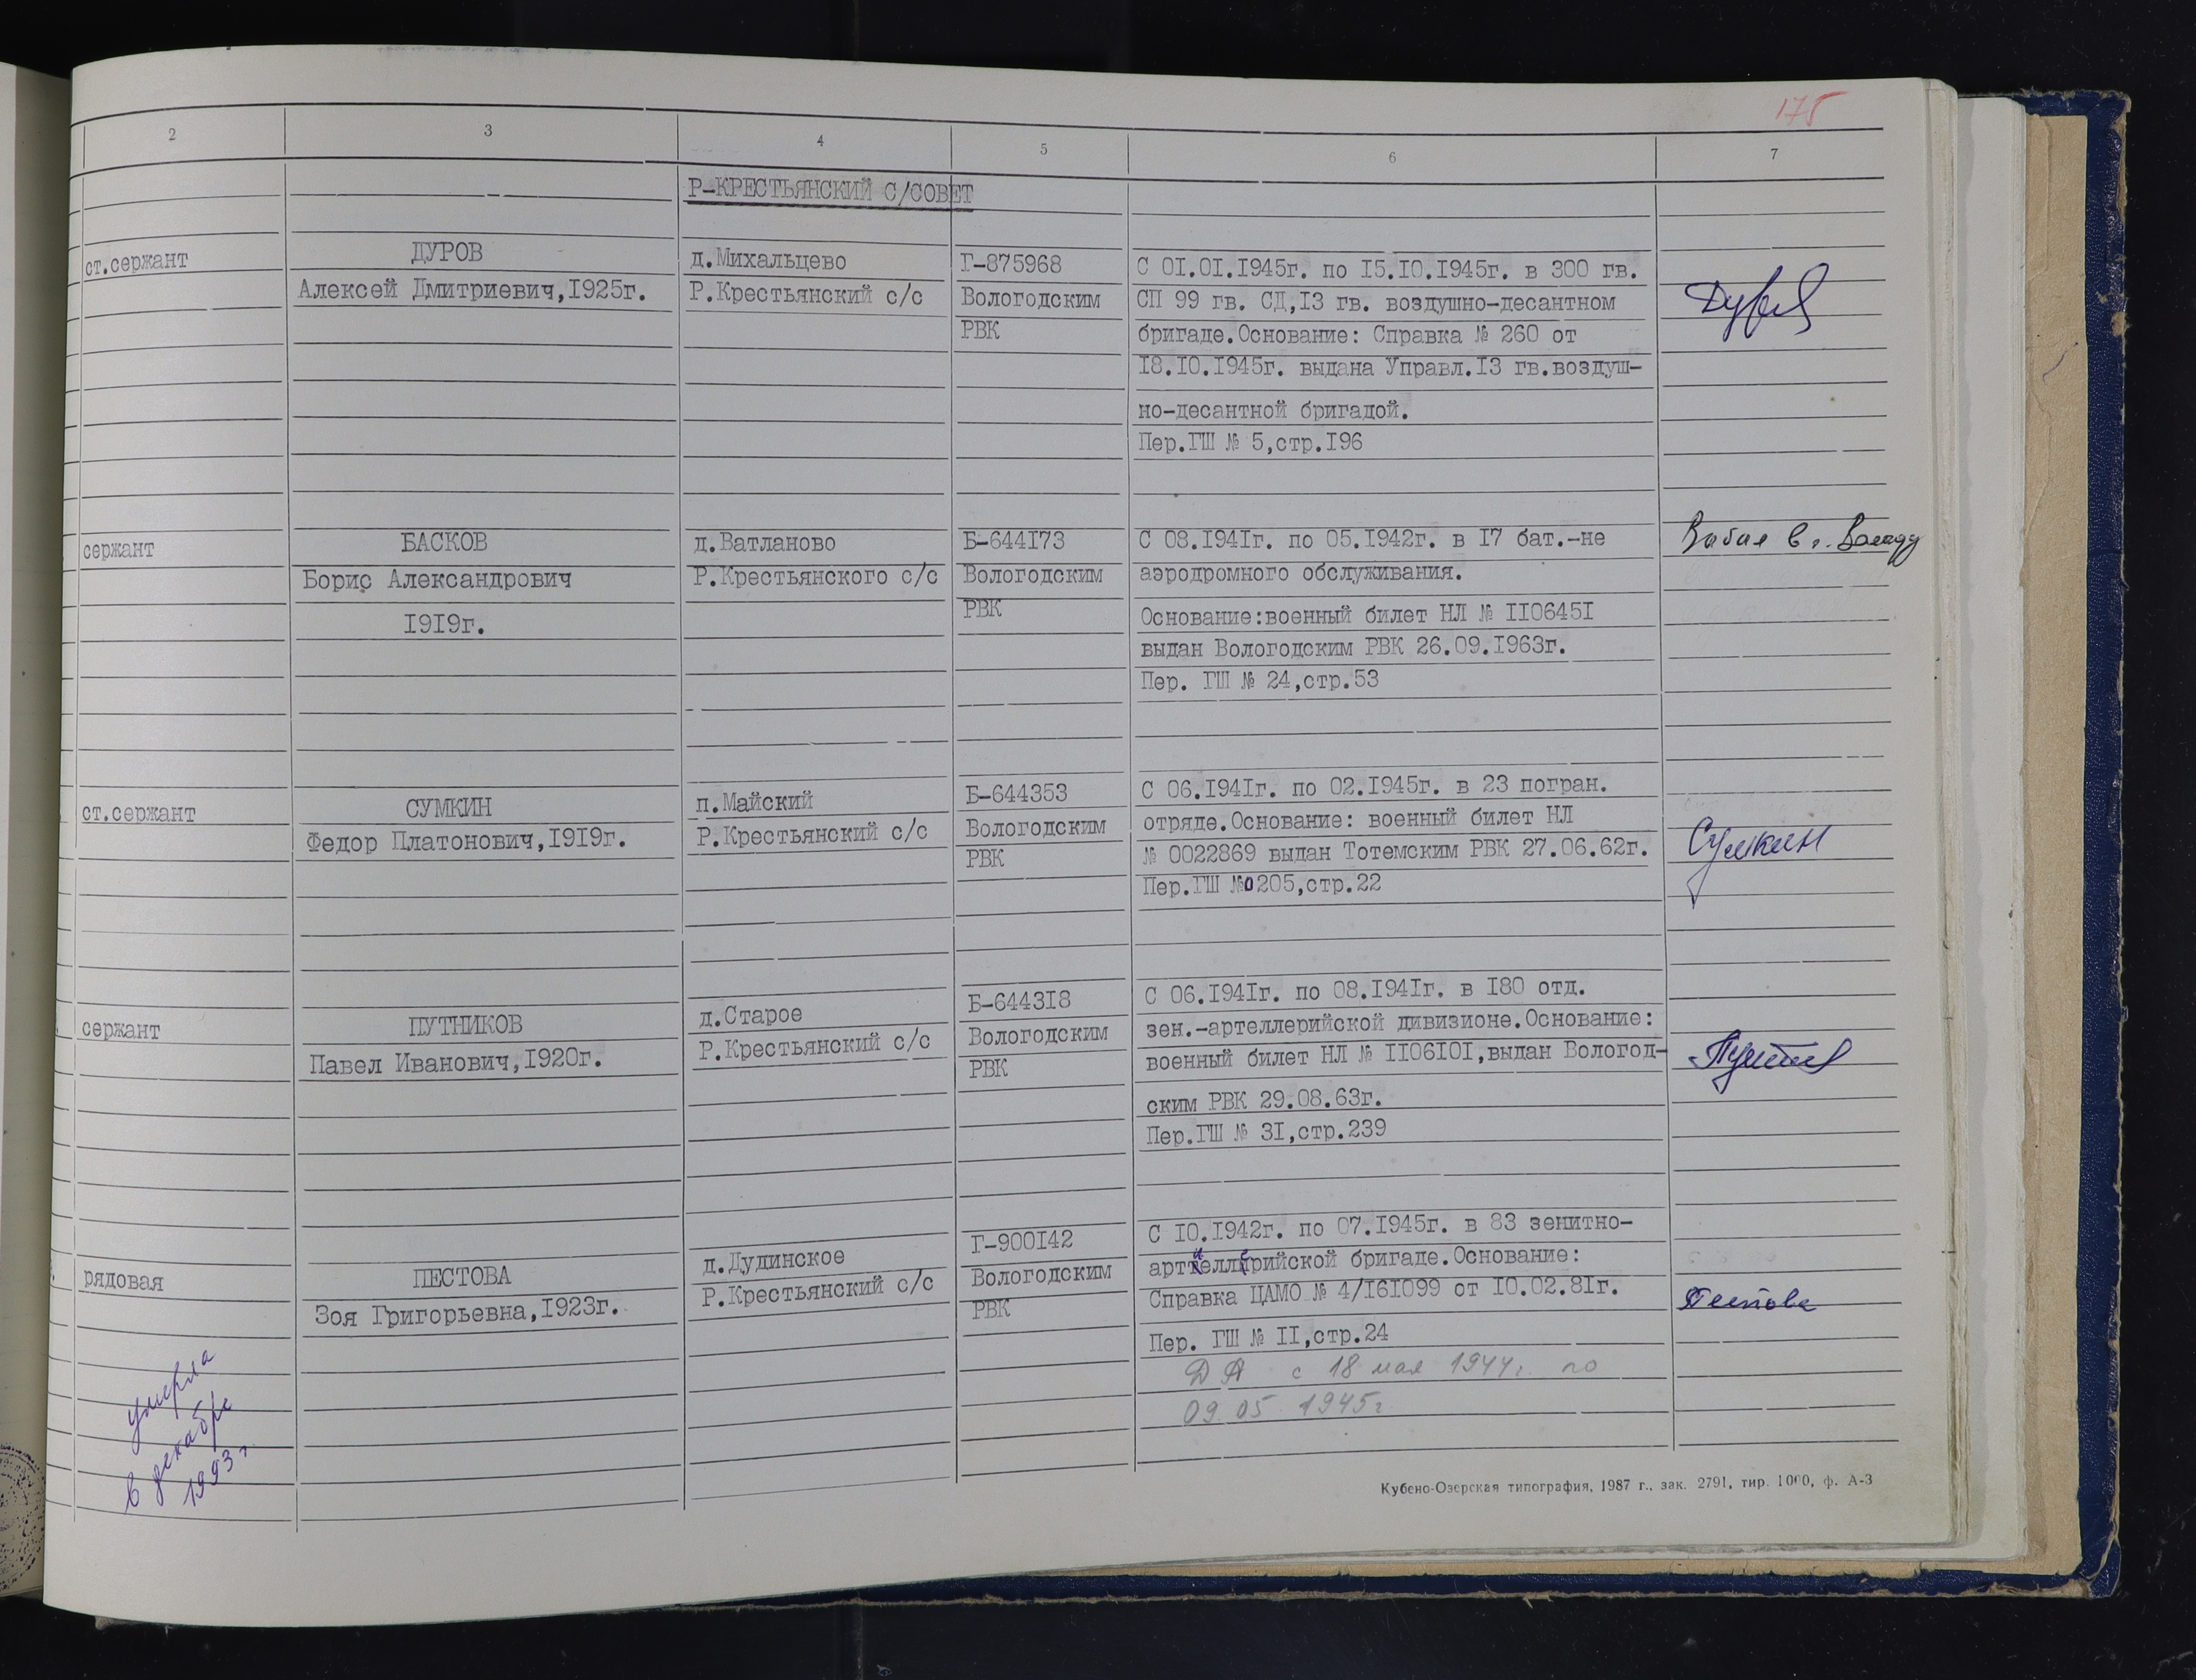 175
2 3 4 5 6 7
Р-КРЕСТЬЯНСКИЙ С/СОВЕТ
ст.сержант
ДУРОВ
Алексей Дмитриевич,1925г.
д.Михальцево
Р.Крестьянский с/с
Г-875968
Вологодским
РВК
С 01.01.1945г. по 15.10.1945г. в 300 гв.
СП 99 гв. СД,13 гв. воздушно-десантном
бригаде.Основание: Справка № 260 от
18.10.1945г. выдана Управл.13 гв.воздуш-
но-десантной бригадой.
Пер.ГШ № 5,стр.196
сержант
БАСКОВ
Борис Александрович
1919г.
д.Ватланово
Р.Крестьянского с/с
Б-644173
Вологодским
РВК
С 08.1941г. по 05.1942г. в 17 бат.-не
аэродромного обслуживания.
Основание:военный билет НЛ № 1106451
выдан Вологодским РВК 26.09.1963г.
Пер. ГШ № 24,стр.53
в г. Вологду
ст.сержант
СУМКИН
Федор Платонович,1919г.
п.Майский
Р.Крестьянский с/с
Б-644353
Вологодским
РВК
С 06.1941г. по 02.1945г. в 23 погран.
отряде.Основание: военный билет НЛ
№ 0022869 выдан Тотемским РВК 27.06.62г.
Пер.ГШ №0205,стр.22
Сумкин
сержант
ПУТНИКОВ
Павел Иванович,1920г.
д.Старое
Р.Крестьянский с/с
Б-644318
Вологодским
РВК
С 06.1941г. по 08.1941г. в 180 отд.
зен.-артеллерийской дивизионе.Основание:
военный билет НЛ № 1106101,выдан Вологод-
ским РВК 29.08.63г.
Пер.ГШ № 31,стр.239
рядовая
ПЕСТОВА
Зоя Григорьевна,1923г.
д.Дудинское
Р.Крестьянский с/с
Г-900142
Вологодским
РВК
С 10.1942г. по 07.1945г. в 83 зенитно-
артиллерийской бригаде.Основание:
Справка ЦАМО № 4/161099 от 10.02.81г.
Пер. ГШ № 11,стр.24
ДА с 18 мая 1944г. по
09.05 1945г
Пестова
умерла
в декабре
1993г
Кубено-Озерская типография, 1987 г., зак. 2791, тир. 1000, ф. А-3